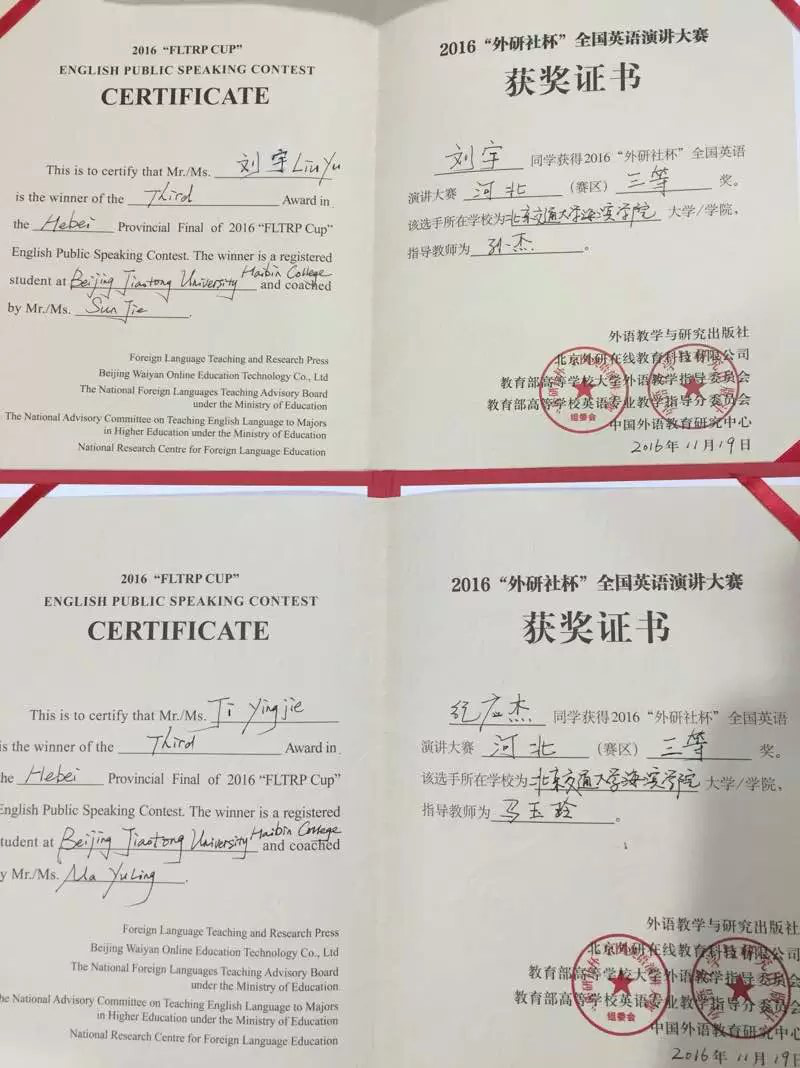 2016 “FLTRP CUP”
ENGLISH PUBLIC SPEAKING CONTEST
CERTIFICATE
This is to certify that Mr./Ms. 刘宇 Liu Yu
is the winner of the Third Award in
the Hebei Provincial Final of 2016 “FLTRP Cup”
English Public Speaking Contest. The winner is a registered
student at Beijing Jiaotong University Haibin College and coached
by Mr./Ms. Sun Jie.
Foreign Language Teaching and Research Press
Beijing Waiyan Online Education Technology Co., Ltd
The National Foreign Languages Teaching Advisory Board
under the Ministry of Education
The National Advisory Committee on Teaching English Language to Majors
in Higher Education under the Ministry of Education
National Research Centre for Foreign Language Education
2016 “外研社杯” 全国英语演讲大赛
获奖证书
刘宇 同学获得2016 “外研社杯” 全国英语
演讲大赛 河北 (赛区) 三等 奖。
该选手所在学校为北京交通大学海滨学院 大学/学院,
指导教师为 孙杰 。
外语教学与研究出版社
北京外研在线教育科技有限公司
教育部高等学校大学外语教学指导委员会
教育部高等学校英语专业教学指导分委员会
中国外语教育研究中心
2016年11月19日
组委会
2016 “FLTRP CUP”
ENGLISH PUBLIC SPEAKING CONTEST
CERTIFICATE
This is to certify that Mr./Ms. Ji Yingjie
is the winner of the Third Award in
the Hebei Provincial Final of 2016 “FLTRP Cup”
English Public Speaking Contest. The winner is a registered
tudent at Beijing Jiaotong University Haibin College and coached
y Mr./Ms. Ma Yuling.
Foreign Language Teaching and Research Press
Beijing Waiyan Online Education Technology Co., Ltd
The National Foreign Languages Teaching Advisory Board
under the Ministry of Education
he National Advisory Committee on Teaching English Language to Majors
in Higher Education under the Ministry of Education
National Research Centre for Foreign Language Education
2016 “外研社杯” 全国英语演讲大赛
获奖证书
纪应杰 同学获得2016 “外研社杯” 全国英语
演讲大赛 河北 (赛区) 三等 奖。
该选手所在学校为北京交通大学海滨学院 大学/学院,
指导教师为 马玉玲 。
外语教学与研究出版社
北京外研在线教育科技有限公司
教育部高等学校大学外语教学指导委员会
教育部高等学校英语专业教学指导分委员会
中国外语教育研究中心
2016年11月19日
组委会